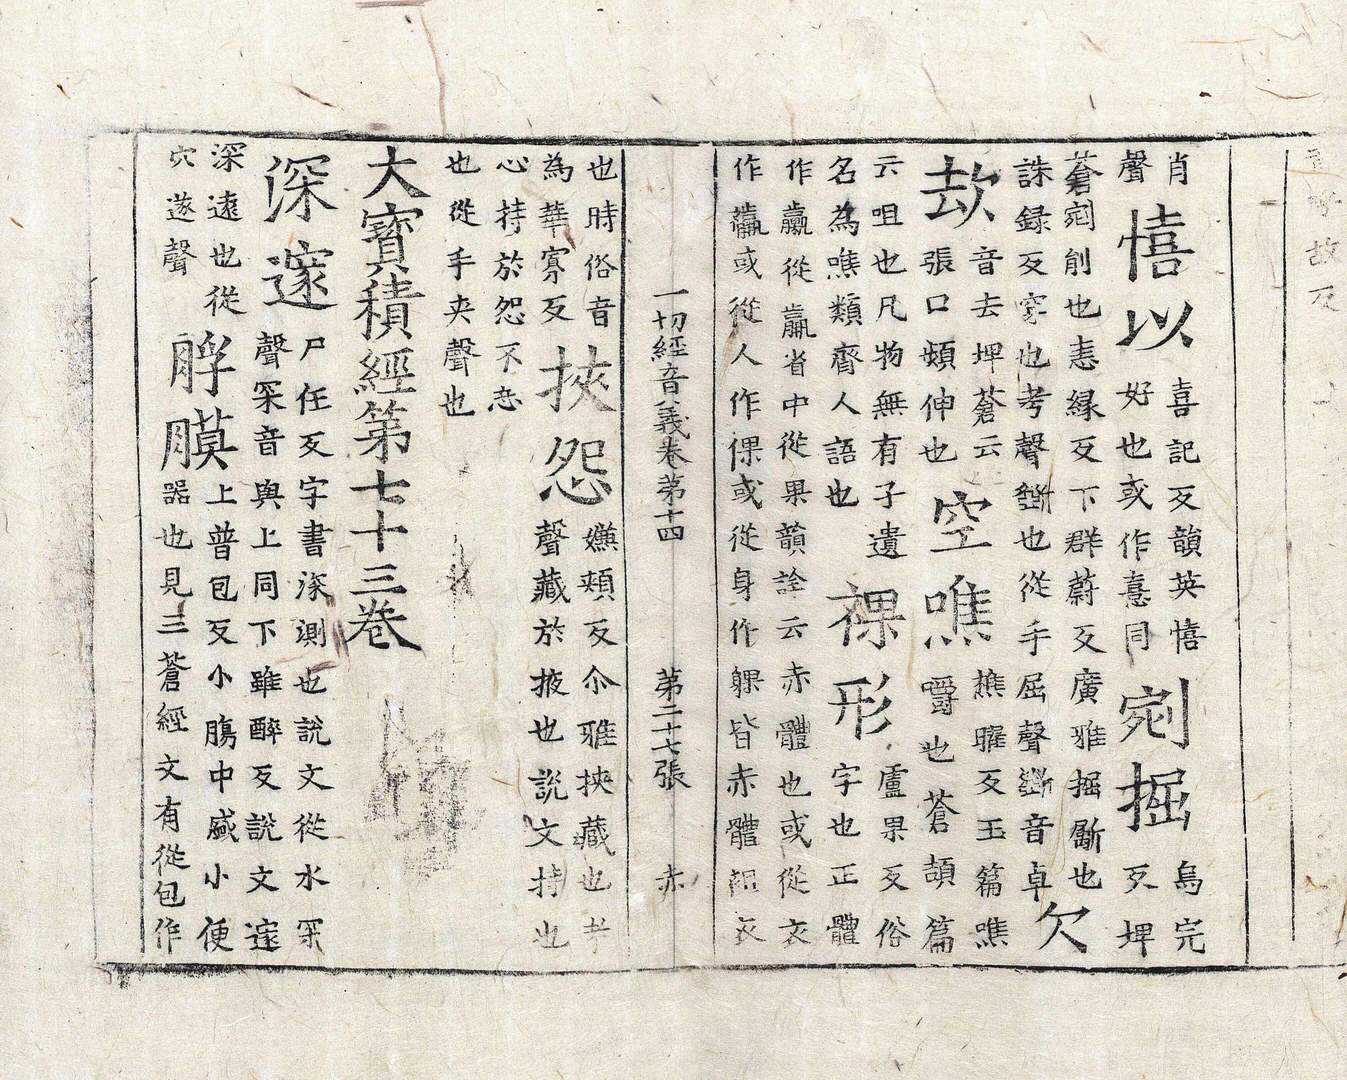 故反
肖聲憘以喜記反韻英憘好也或作憙同剜掘烏完反埤
蒼剜削也恚縁反下群蔚反廣雅掘斸也誅録反穿也考聲斵也從手屈聲斵音卓欠
㰦音去埤蒼云張口頻伸也空噍樵曜反玉篇噍嚼也蒼頡篇
云咀也凡物無有孑遺名為噍類齊人語也裸形盧果反俗字也正體
作臝從𣎆省中從果韻詮云赤體也或從衣作臝或從人作倮或從身作躶皆赤體袒衣
一切經音義卷第十四 第二十七張 赤
也時俗音為華寡反挾怨嫌頰反尒雅挾藏也考聲藏於掖也説文持也
心持於怨不忘也從手夾聲也
大寶積經第七十三卷
深邃尸任反字書深測也說文從水罙聲罙音與上同下雖醉反說文邃
深遠也從穴遂聲脬膜上普包反小膓中盛小便器也見三蒼經文有從包作